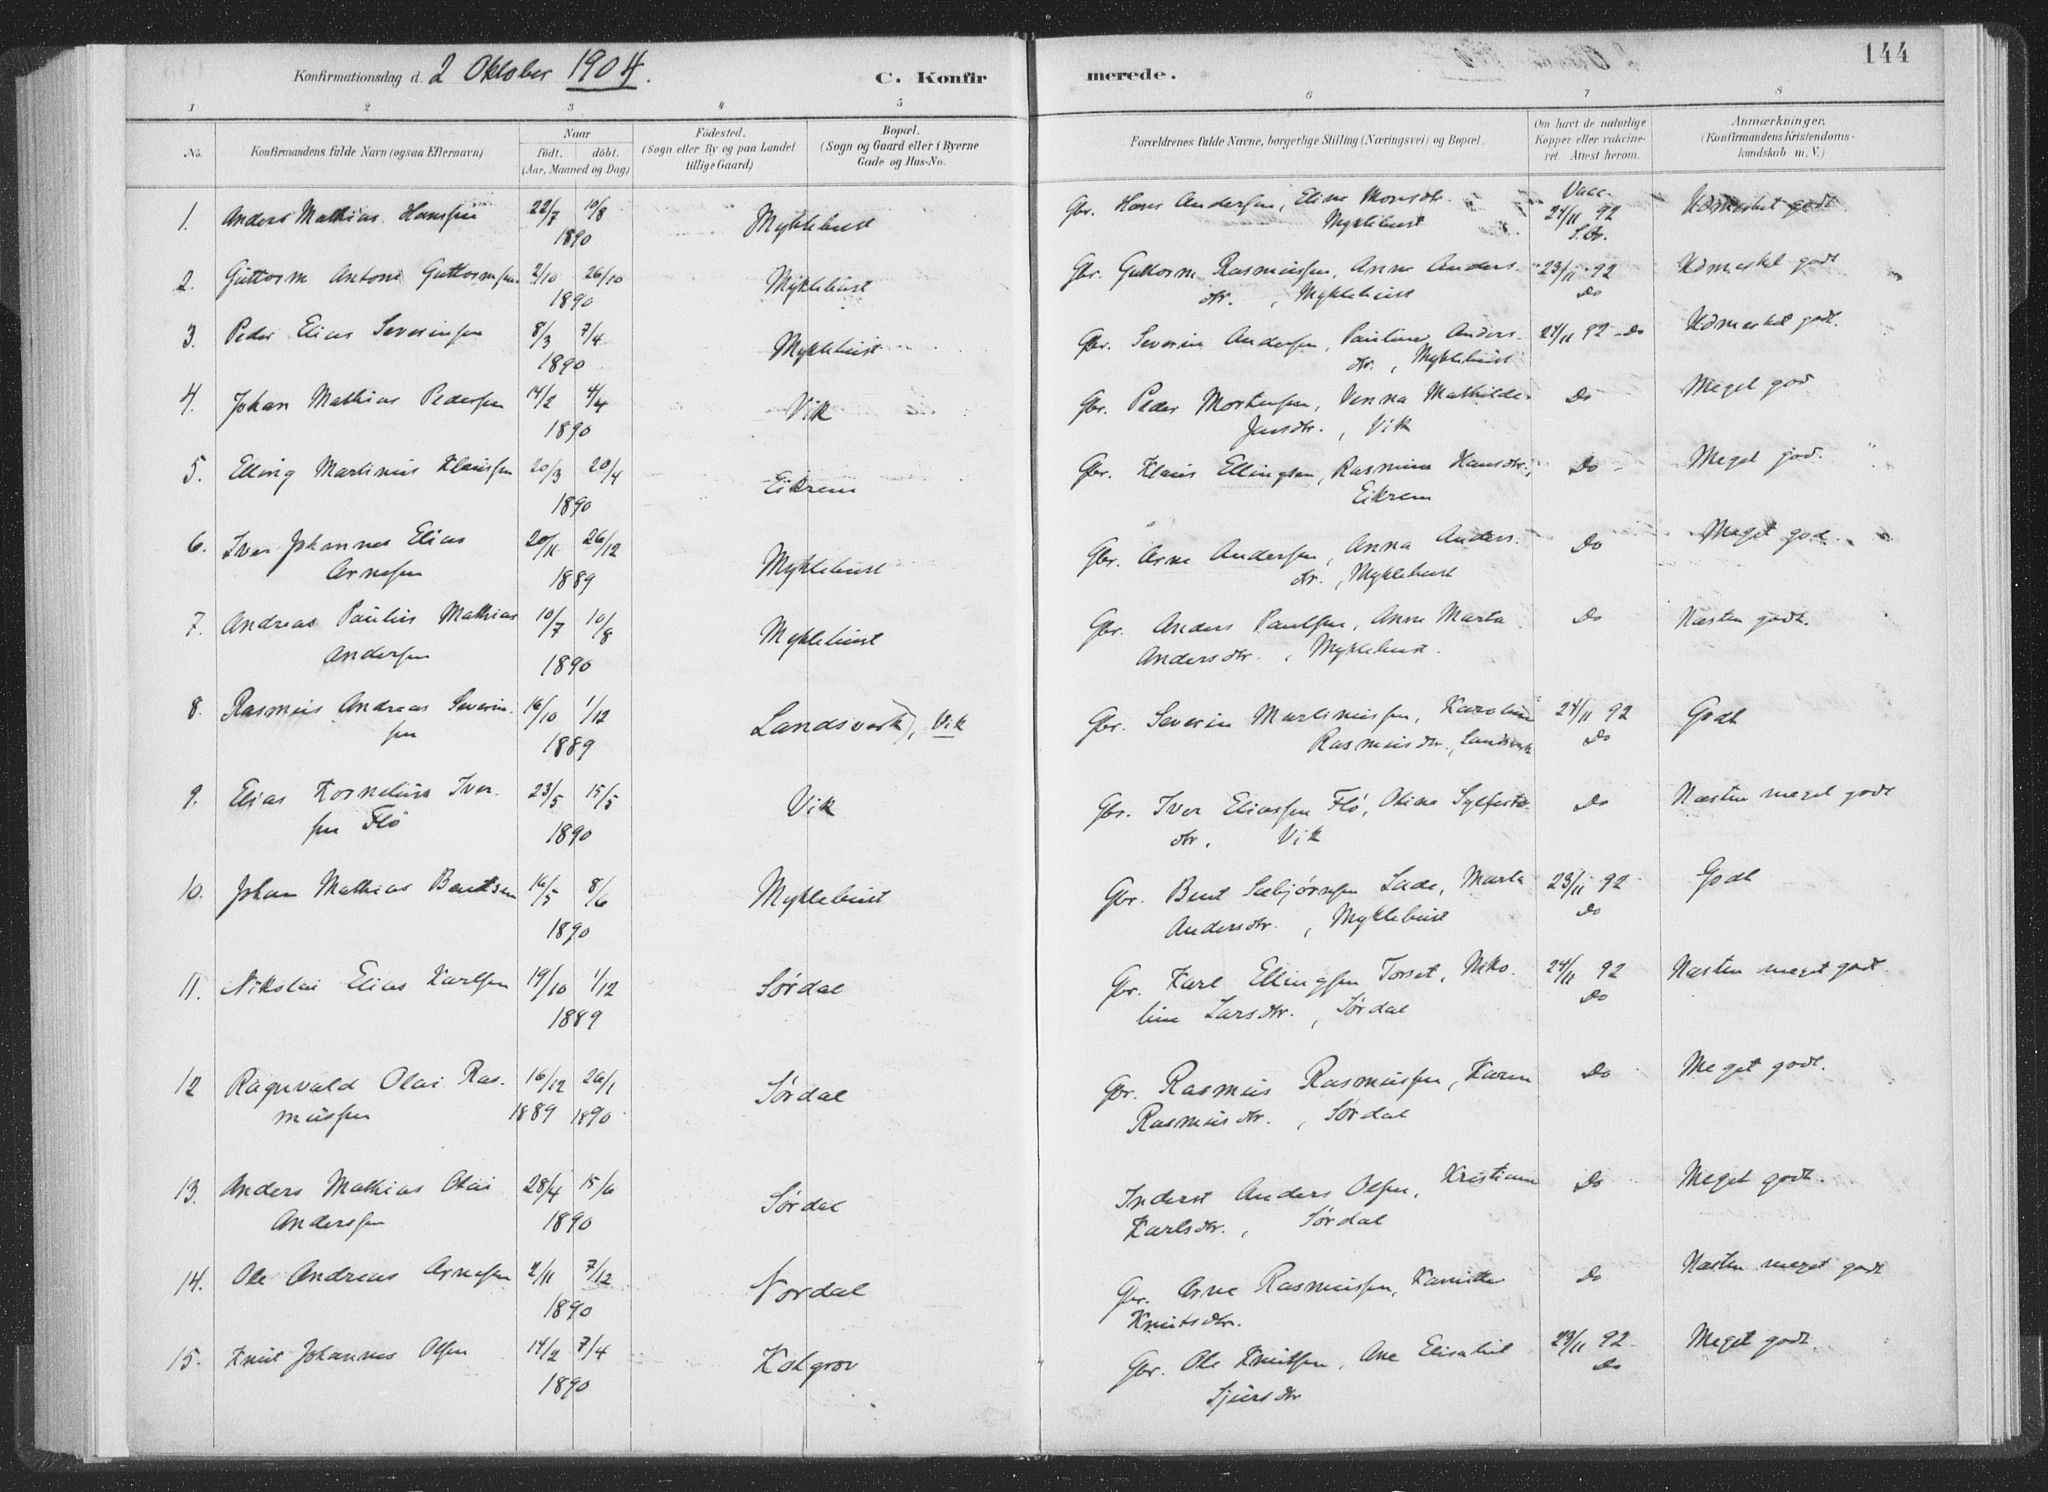 Konfirmationsdag d. 2 Oktober 1904. C. Konfirmerede. 144
1 2 3 4 5 6 7 8
No. Konfirmandens fulde Navn (ogsaa Efternavn) Naar födt. döbt. (Aar, Maaned og Dag) Födested. (Sogn eller By og paa Landet tillige Gaard) Bopæl. (Sogn og Gaard eller i Byerne Gade og Hus-No. Forældrenes fulde Navne, borgerlige Stilling (Næringsvei) og Bopæl. Om havt de naturlige Kopper eller vakcineret. Attest herom. Anmærkninger. (Konfirmandens Kristendomskundskab m. V.)
1. Anders Mathias Hansen 22/7 10/8 Myklebust Gbr. Hans Andersen, Eline Monsdtr. Vacc. 24/11 92 Udmerket godt.
1890 Myklebust
2. Guttorm Antoni Guttormsen 2/10 26/10 Myklebust Gbr. Guttorm Rasmussen, Anne Anders- 23/11 92 Udmerket godt
1890 dtr., Myklebust Do
3. Peder Elias Severinsen 8/3 7/4 Myklebust Gbr. Severin Andersen, Pauline Anders- 24/11 92 Do Udmerket godt.
1890 dtr., Myklebust
4. Johan Mathias Pedersen 14/2 4/4 Vik Gbr. Peder Mortensen, Venna Mathilde Do Meget god
1890 Jensdtr., Vik
5. Elling Martinus Klausen 20/3 20/4 Eikrem Gbr. Klaus Ellingsen, Rasmine Hansdtr., Do Meget god.
1890 Eikrem
6. Iver Johannes Elias 20/11 26/12 Myklebust Gbr. Arne Andersen, Anna Anders- Do Meget god.
Arnesen 1889 dtr., Myklebust
7. Andreas Paulus Mathias 10/7 10/8 Myklebust Gbr. Anders Paulsen, Anne Marta Do Næsten godt.
Andersen 1890 Andersdtr., Myklebust.
8. Rasmus Andreas Severin- 16/10 1/12 Landsverk), Vik Gbr. Severin Martinussen, Karoline 24/11 92 Godt
sen 1889 Rasmusdtr., Landsverk Do
9. Elias Kornelius Iver- 23/5 15/5 Vik Gbr. Iver Eliassen Flö, Oline Sylfests- Do Næsten meget godt
sen Flö 1890 dtr., Vik
10. Johan Mathias Bentsen 16/5 8/6 Myklebust Gbr. Bent Sæbjørnsen Lade, Marta 23/11 92 Godt
1890 Andersdtr., Myklebust Do
11. Nikolai Elias Karlsen 19/10 1/12 Sørdal Gbr. Karl Ellingsen Torset, Niko- 24/11 92 Næsten meget godt.
1889 line Larsdtr., Sørdal Do
12 Ragnvald Olai Ras- 16/12 26/1 Sørdal Gbr. Rasmus Rasmussen, Karen Do Meget godt.
mussen 1889 1890 Rasmusdtr., Sørdal
13. Anders Mathias Olai 28/4 15/6 Sørdal Inderst Anders Olsen, Kristianne Do Meget godt.
Andersen 1890 Karlsdtr., Sørdal
14. Ole Andreas Arnesen 2/11 7/12 Nordal Gbr. Arne Rasmussen, Kamilla Do Næsten meget godt
1890 Knutsdtr.
15. Knut Johannes Olsen 14/2 7/4 Kolgrov Gbr. Ole Knutsen, Ane Elisabet 23/11 92 Meget godt.
1890 Sjursdtr Do